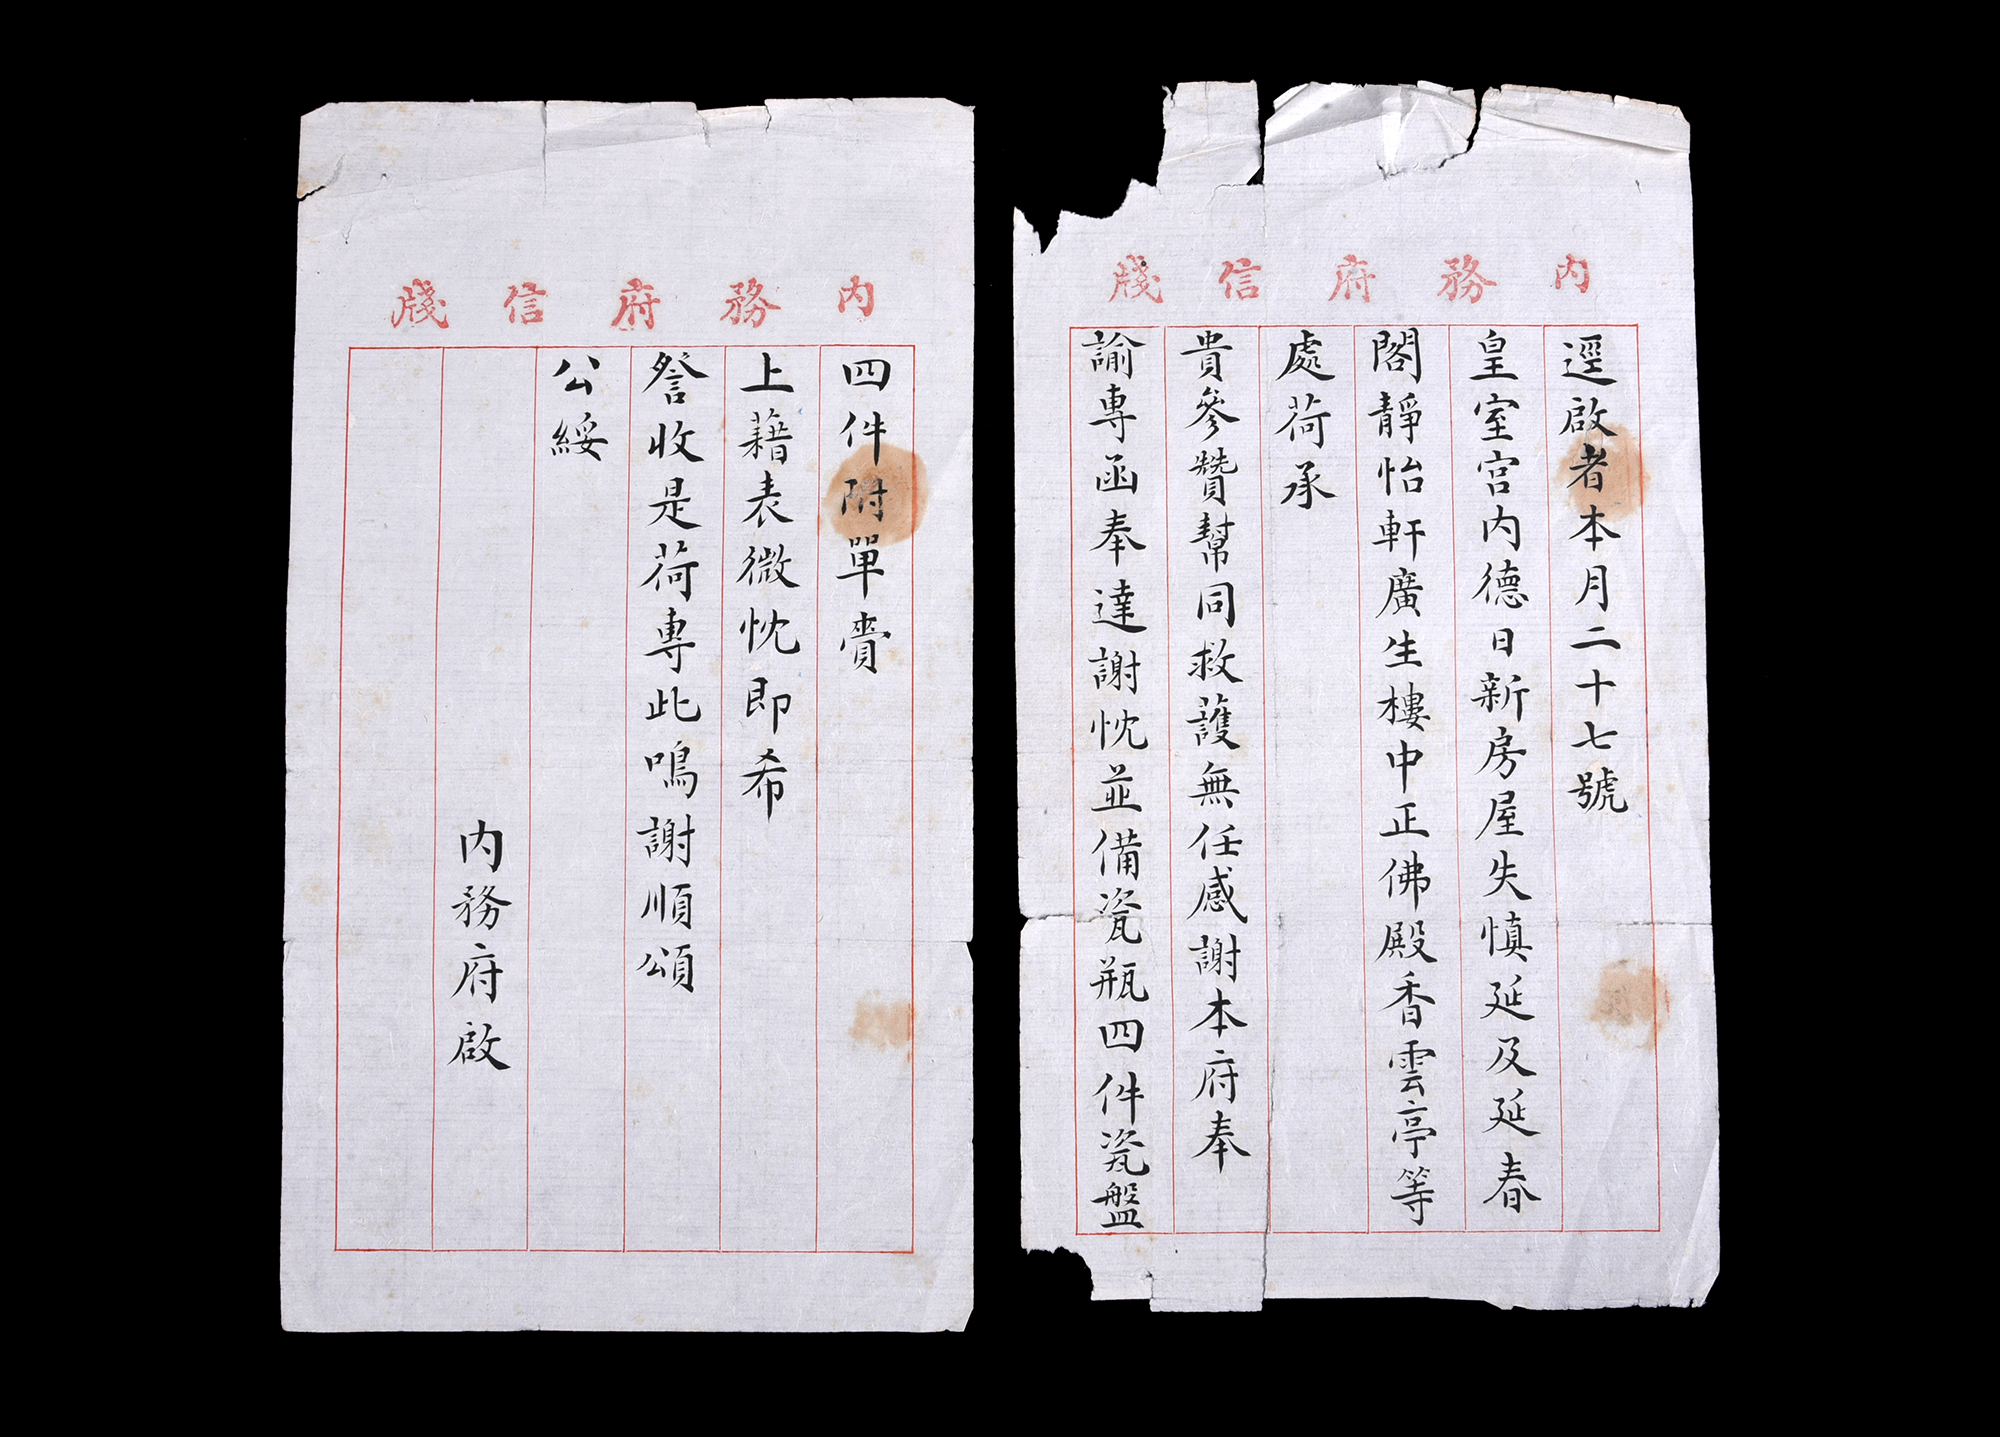 內務府信牋
逕啟者本月二十七號
皇室宮内德日新房屋失慎延及延春
閣靜怡軒廣生樓中正佛殿香雲亭等
處荷承
貴參贊幫同救護無任感謝本府奉
諭專函奉達謝忱並備瓷瓶四件瓷盤
內務府信牋
四件附單賫
上藉表微忱即希
詧收是荷專此鳴謝順頌
公綏
內務府啟